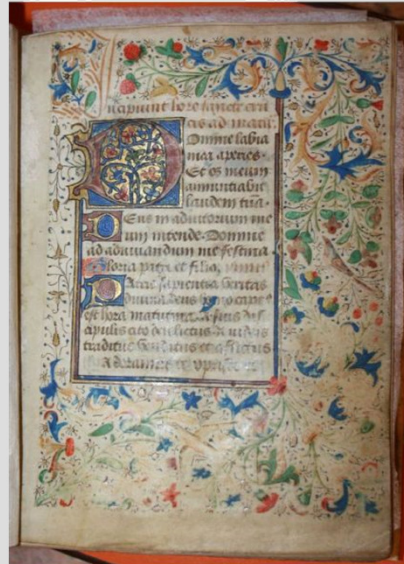 ncipiunt hore sancte cru
cis ad matu
Domine labia
mea aperies
Et os meum
annuntiabit
laudem tua
Deus in adiutorium me
um intende Domine
ad adiuvandum me festina
Gloria patri et filio
Patris sapientia veritas
divina deus homo capt
est hora matutina A suis dis
cipulis cito derelictus A iudeis
traditus venditus et afflictus
Adoramus te